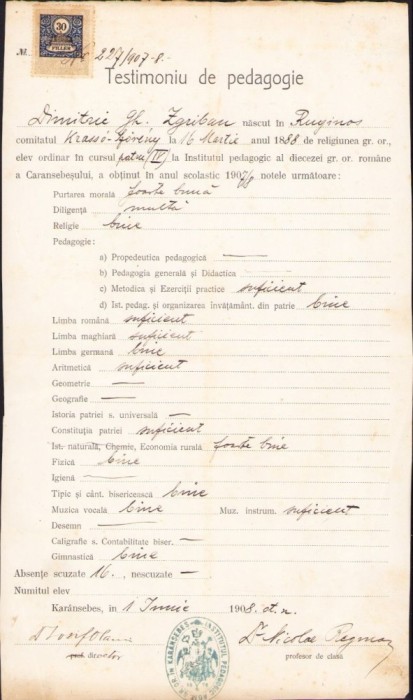 30
FILLÉR
№. 227/907-8.
Testimoniu de pedagogie
Dimitrie Gh. Zgriban născut în Ruginos
comitatul Krassó-Szörény la 16 Martie anul 1888 de religiunea gr. or.,
elev ordinar in cursul patru (IV) la Institutul pedagogic al diecezei gr. or. române
a Caransebeșului, a obținut în anul scolastic 1907/8 notele următoare:
Purtarea morală foarte bună
Diligență multă
Religie bine
Pedagogie:
a) Propedeutica pedagogică —
b) Pedagogia generală și Didactica —
c) Metodica si Exerciții practice suficient
d) Ist. pedag. și organizarea învățământ. din patrie bine
Limba română suficient
Limba maghiară suficient
Limba germană bine
Aritmetică suficient
Geometrie —
Geografie —
Istoria patriei s. universală —
Constituția patriei suficient
Ist. naturală, Chemie, Economia rurală foarte bine
Fizică bine
Igienă —
Tipic și cânt. bisericească bine
Muzica vocală bine Muz. instrum. suficient
Desemn —
Caligrafie s. Contabilitate biser. —
Gimnastică bine
Absențe scuzate 16., nescuzate —
Numitul elev
Karánsebes, in 1 Iunie 1908. st. n.
Dr Nicolae
director profesor de clasă